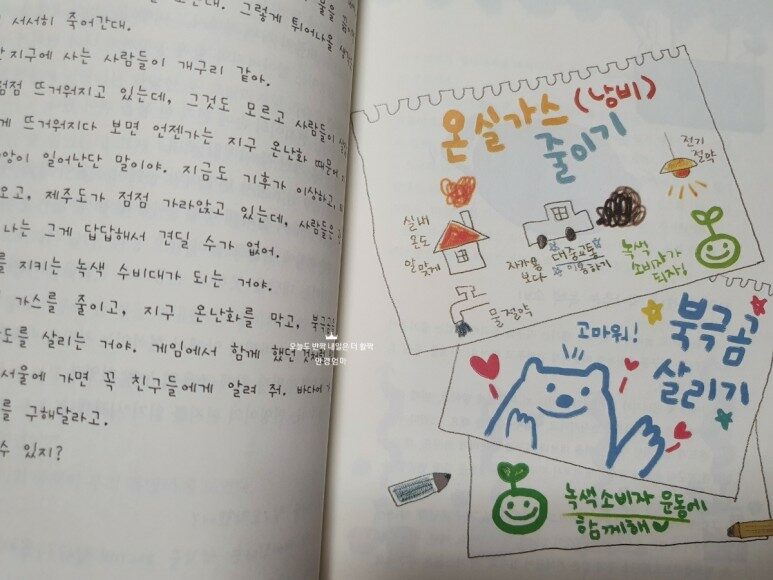 그렇게 튀어나올
서서히 죽어간대.
지구에 사는 사람들이 개구리 같아.
점점 뜨거워지고 있는데, 그것도 모르고 사람들이
뜨거워지다 보면 언젠가는 지구 온난화 때문에
일어난단 말이야. 지금도 기후가 이상하고,
오고, 제주도가 점점 가라앉고 있는데, 사람들은
나는 그게 답답해서 견딜 수가 없어.
를 지키는 녹색 수비대가 되는 거야.
가스를 줄이고, 지구 온난화를 막고, 북극곰
도를 살리는 거야. 게임에서 함께 했던 것처럼
서울에 가면 꼭 친구들에게 알려 줘. 바다에
를 구해달라고.
수 있지?
오늘도 반짝 내일은 더 활짝
안경엄마
온실가스 (낭비)
줄이기
전기
절약
실내
온도
알맞게
자가용
보다
대중교통
이용하기
녹색
소비자가
되자!
물 절약
고마워!
북극곰
살리기
녹색소비자 운동에
함께해